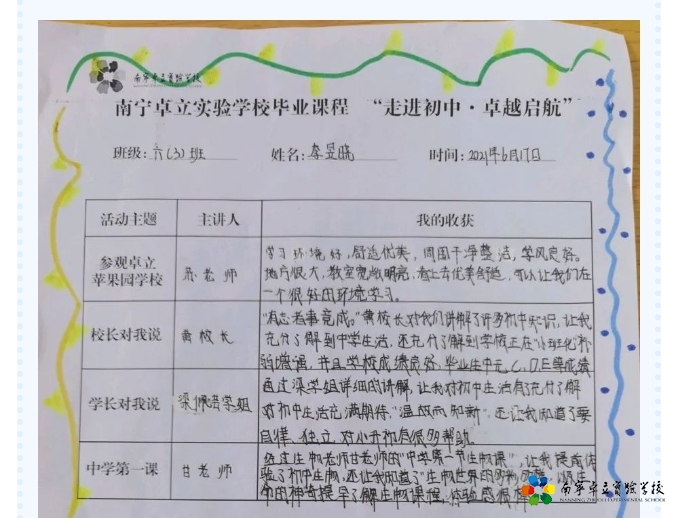 南宁卓立实验学校
南宁卓立实验学校毕业课程 “走进初中·卓越启航”
班级: 六(3)班 姓名: 李昱晓 时间: 2021年6月17日
活动主题 主讲人 我的收获
参观卓立
苹果园学校
老师
学习环境好,舒适优美,周围干净整洁,学风良好。
地方很大,教室宽敞明亮,看上去优美舒适,可以让我们在
一个很好的环境学习。
校长对我说
黄校长
“有志者事竟成。”黄校长对我们讲解了许多初中知识,让我
充分了解到中学生活,还充分了解到学校正在小班化补
弱增强,并且学校成绩良好,毕业生中无C、D、E等成绩
学长对我说
梁 学姐
通过梁学姐详细的讲解,让我对初中生活有了充分了解
对初中生活充满期待,“温故而知新”,还让我知道了要
自律、独立,对小升初有很多帮助。
中学第一课
甘老师
经过生物老师甘老师的“中学第一节生物课”,让我提前体
验了初中生物,还让我知道了生物世界的
的神奇提早了解生物课程,体验感很
南宁卓立实验学校
NANNING ZHUOLI EXPERIMENTAL SCHOOL